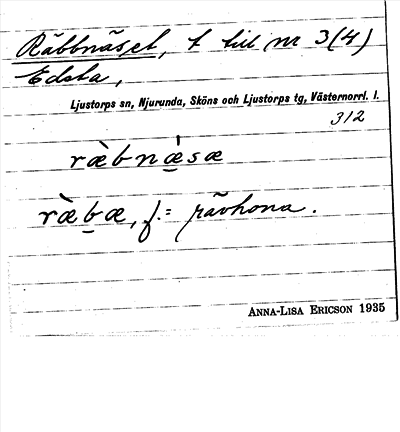 Räbbnäset, t till nr 3(4)
Edsta,
Ljustorps sn, Njurunda, Sköns och Ljustorps tg, Västernorrl. l.
312
ræ̀bnæ̀sæ
ræ̀bæ, f. = rävhona.
ANNA-LISA ERICSON 1935